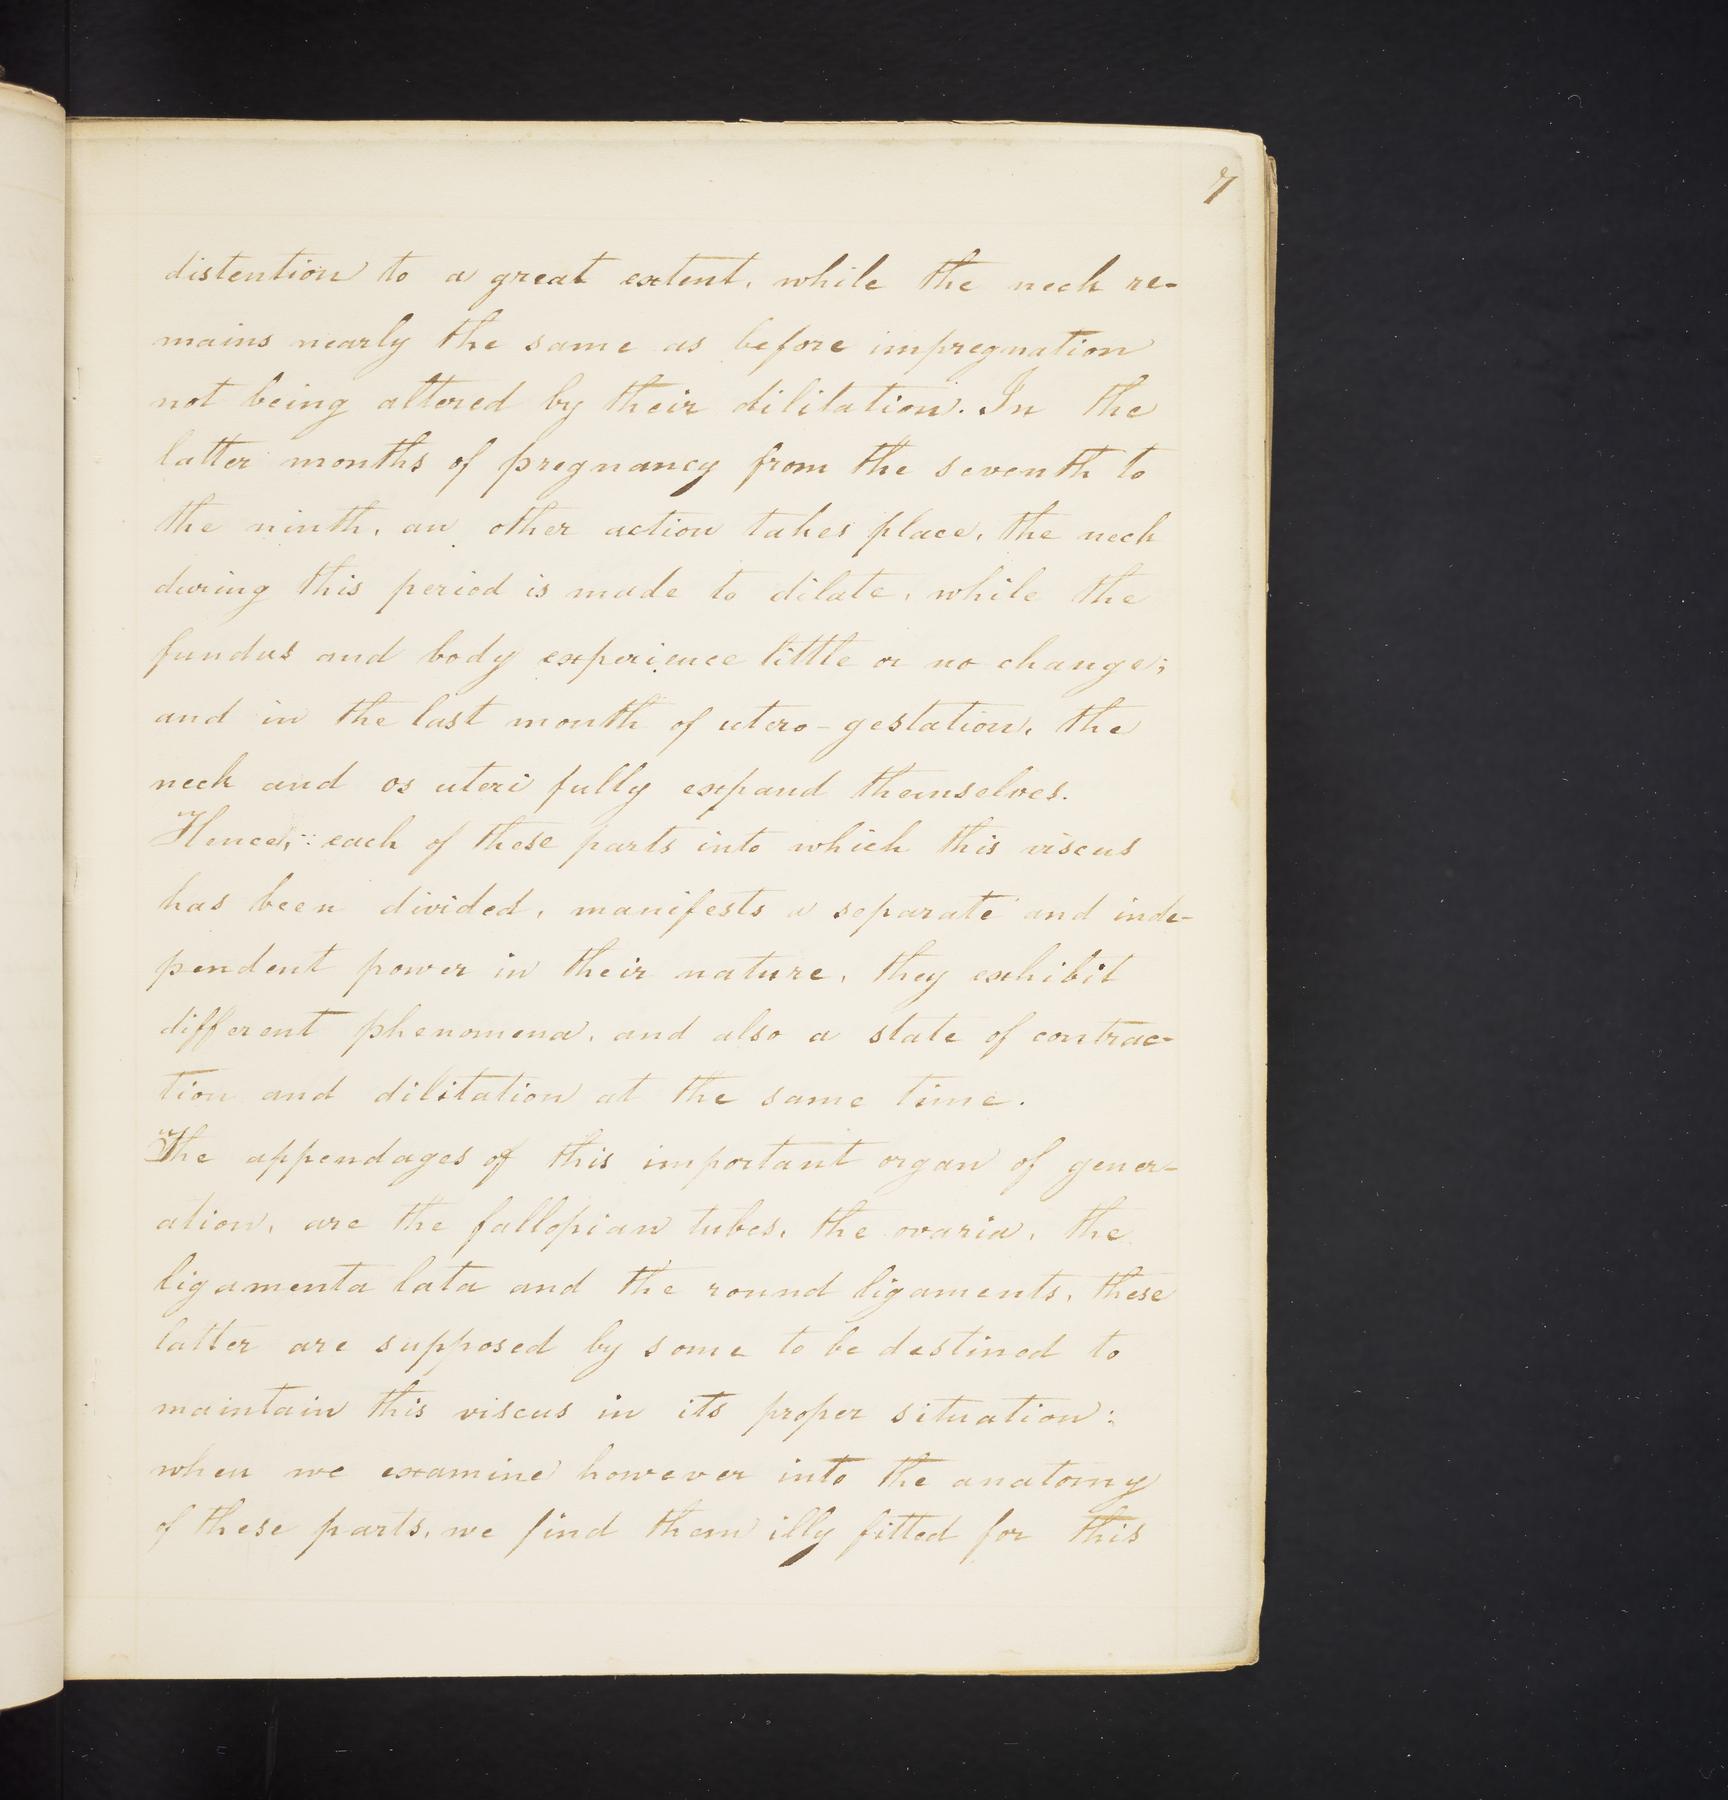 7
distention to a great extent, while the neck re-
mains nearly the same as before impregnation
not being altered by their dilitation. In the
latter months of pregnancy from the seventh to
the ninth, an other action takes place, the neck
during this period is made to dilate, while the
fundus and body experience little or no change;
and in the last month of utero-gestation, the
neck and os uteri fully expand themselves.
Hence, each of these parts into which this viscus
has been divided, manifests a separate and inde-
pendent power in their nature, they exhibit
different phenomena, and also a state of contrac-
tion and dilitation at the same time.
The appendages of this important organ of gener-
ation, are the fallopian tubes, the ovaria, the
ligamenta lata and the round ligaments, these
latter are supposed by some to be destined to
maintain this viscus in its proper situation:
when we examine however into the anatomy
of these parts, we find them illy fitted for this